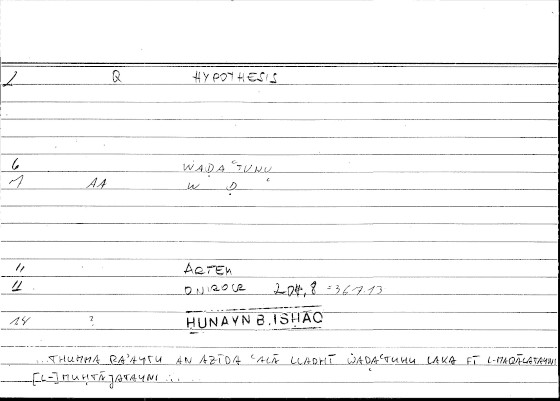 1 Q HYPOTHESIS
6 WAḌAʿTUHU
7 AA W Ḍ ʿ
11 ARTEM
11 ONIROCR 204,8 =367.13
14 ? ḤUNAYN B. ISḤĀQ
...THUMMA RAʾAYTU AN AZĪDA ʿALĀ LLADHĪ WAḌAʿTUHU LAKA FĪ L-MAQĀLATAYNI
[L-]MUḤTĀJATAYNI ...